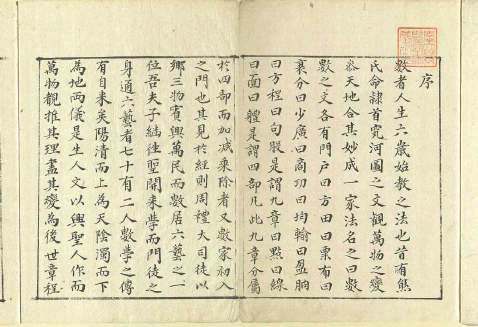 序
數者人生六歲始教之法也昔有熊
氏命隷首究河圖之文觀萬物之變
叅天地合其妙成一家法名之曰數
數之文各有門户曰方田曰粟布曰
衰分曰少廣曰商功曰均輸曰盈朒
曰方程曰句股是謂九章曰點曰線
曰面曰體是謂四部凡此九章分屬
於四部而加减乘除者又數家初入
之門也其見於經則周禮大司徒以
鄉三物賓興萬民而數居六藝之一
位吾夫子繼徃聖開来學而門徒之
身通六藝者七十有二人數學之傳
有自来矣陽清而上為天陰濁而下
為地兩儀是生人文以興聖人作而
萬物覩推其理盡其變為後世章程